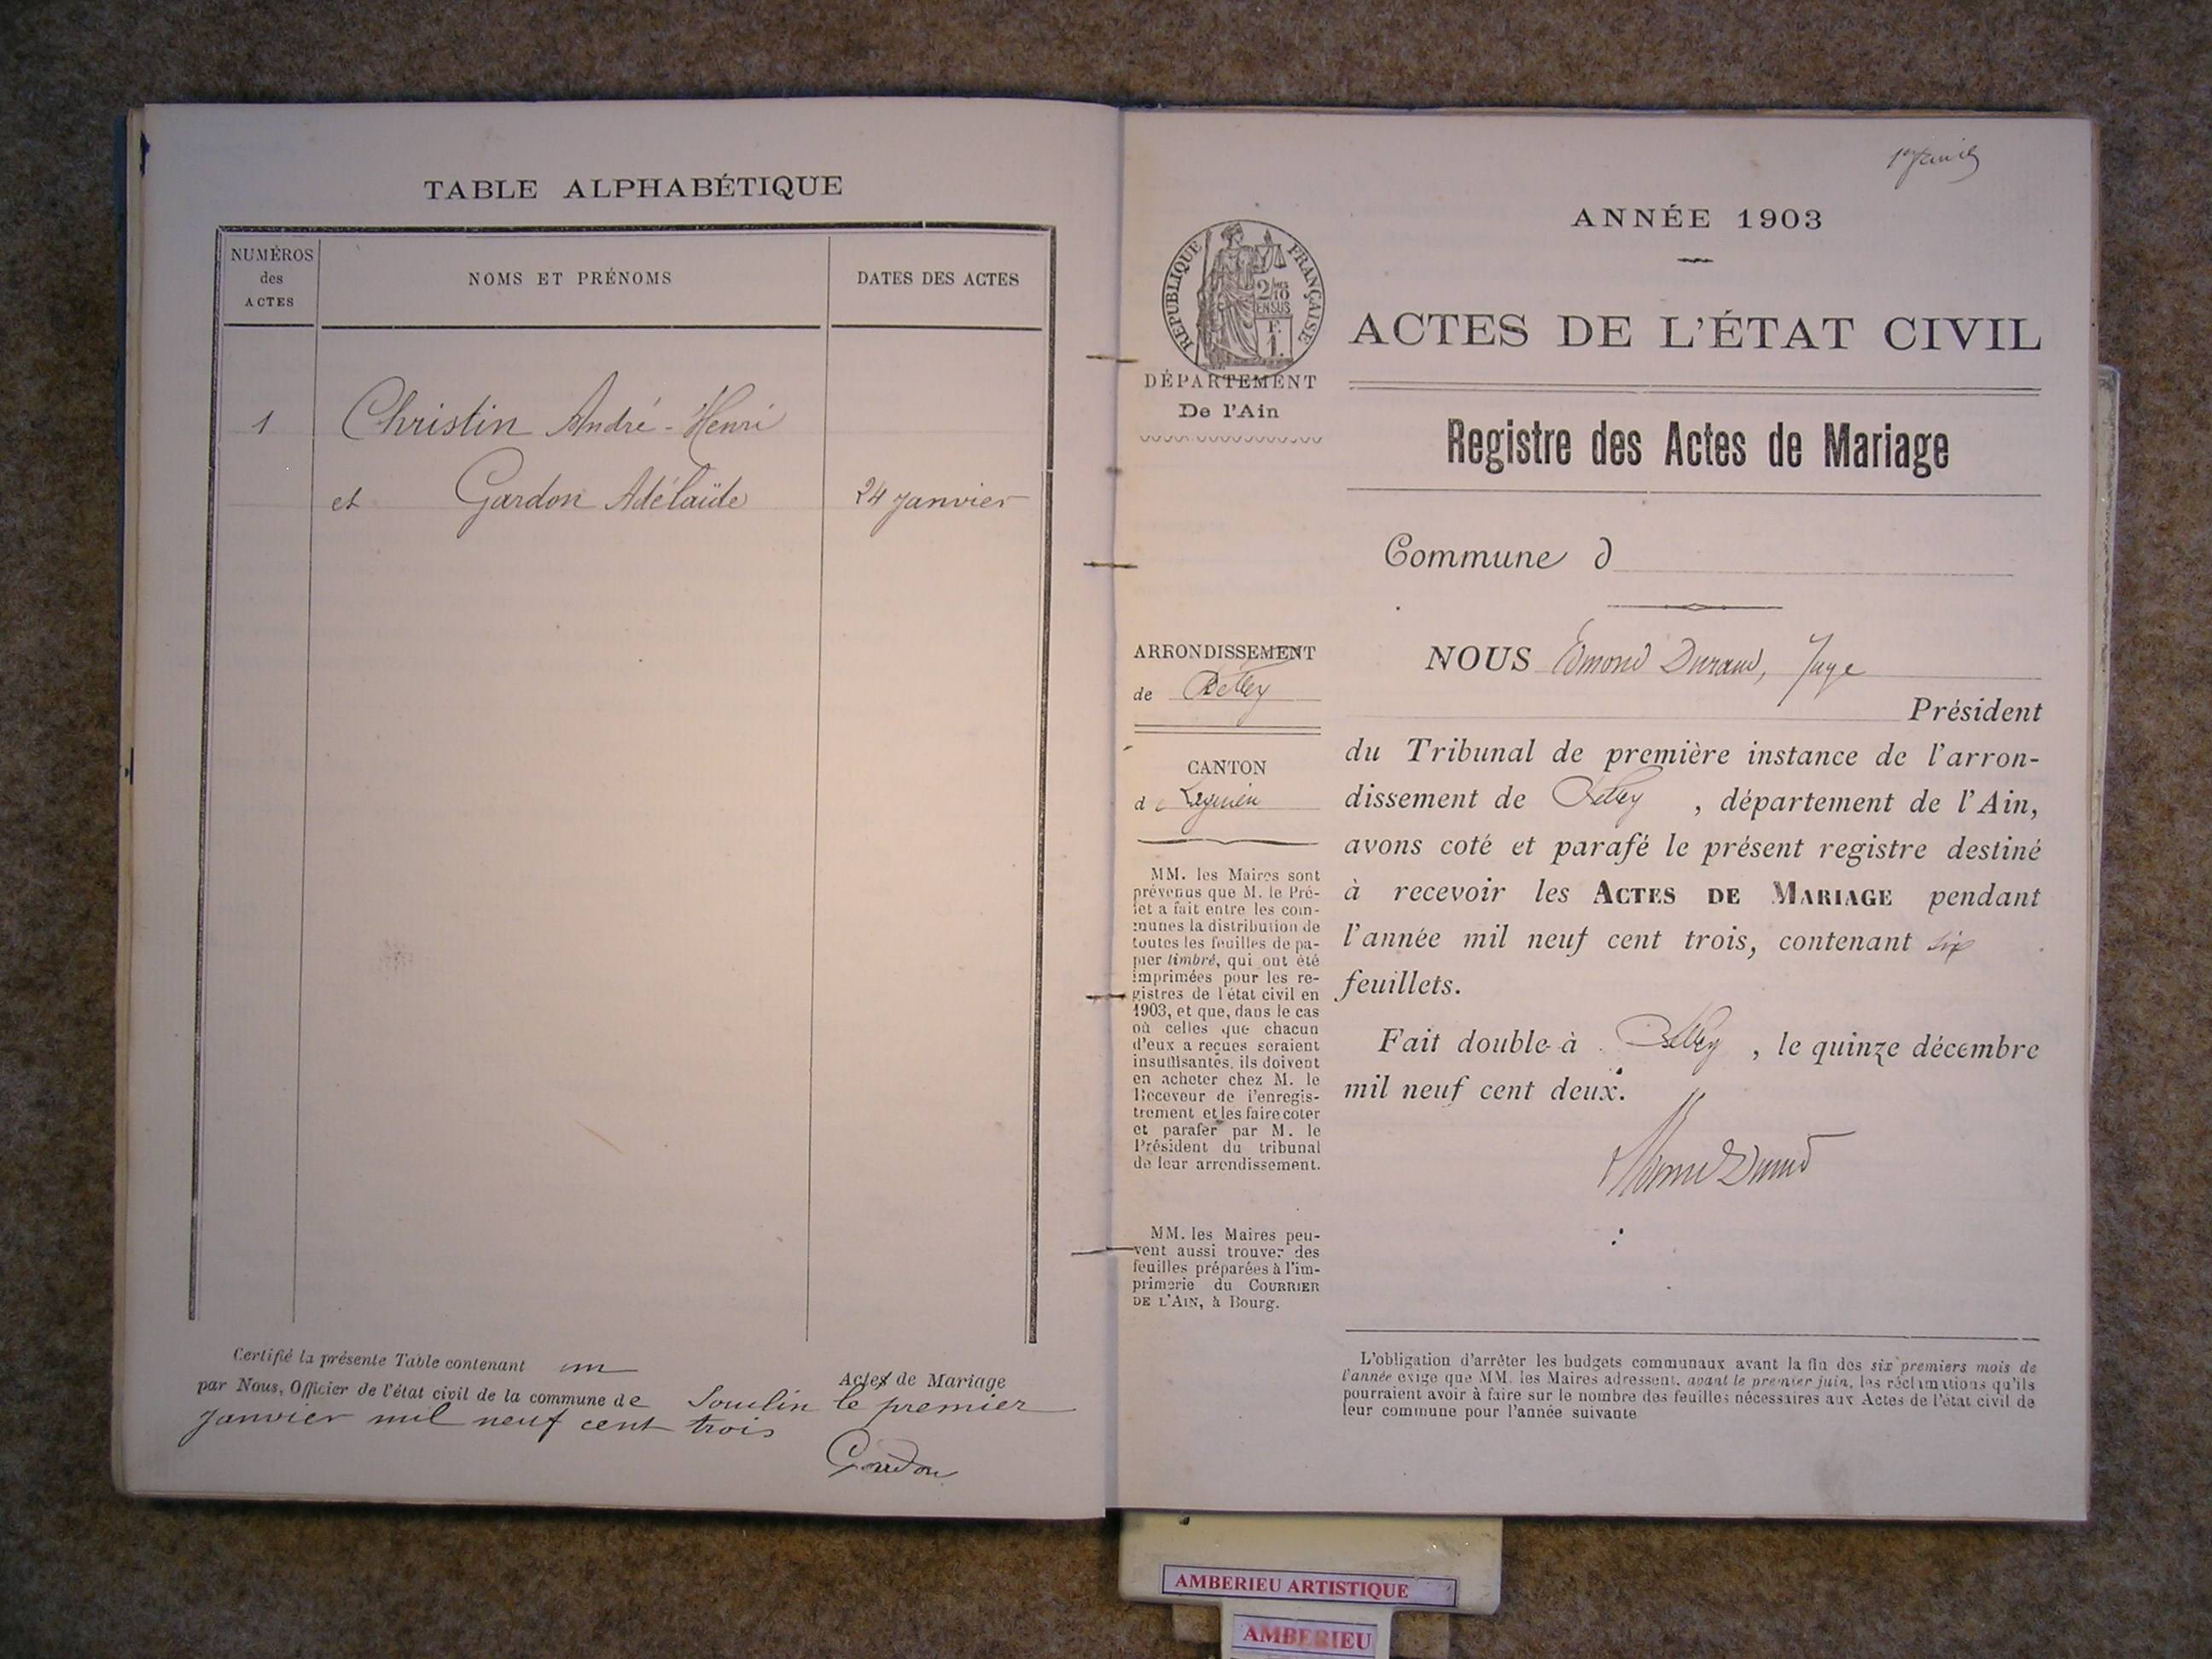 TABLE ALPHABÉTIQUE
NUMÉROS
des
ACTES
NOMS ET PRÉNOMS
DATES DES ACTES
1 Christin André-Henri
et Gardon Adélaïde 24 janvier
Certifié la présente Table contenant un Actes de Mariage
par Nous, Officier de l'état civil de la commune de Souclin le premier
janvier mil neuf cent trois
ANNÉE 1903
RÉPUBLIQUE FRANÇAISE
2/10
EN SUS
ACTES DE L'ÉTAT CIVIL
DÉPARTEMENT
De l'Ain
Registre des Actes de Mariage
Commune d
ARRONDISSEMENT
de Belley
CANTON
de Lagnieu
MM. les Maires sont
prévenus que M. le Pré-
fet a fait entre les com-
munes la distribution de
toutes les feuilles de pa-
pier timbré, qui ont été
imprimées pour les re-
gistres de l'état civil en
1903, et que, dans le cas
où celles que chacun
d'eux a reçues seraient
insuffisantes, ils doivent
en acheter chez M. le
Receveur de l'enregis-
trement et les faire coter
et parafer par M. le
Président du tribunal
de leur arrondissement.
MM. les Maires peu-
vent aussi trouver des
feuilles préparées à l'im-
primerie du COURRIER
DE L'AIN, à Bourg.
NOUS Edmond Durand, Juge
Président
du Tribunal de première instance de l'arron-
dissement de Belley, département de l'Ain,
avons coté et parafé le présent registre destiné
à recevoir les ACTES DE MARIAGE pendant
l'année mil neuf cent trois, contenant six
feuillets.
Fait double à Belley, le quinze décembre
mil neuf cent deux.
L'obligation d'arrêter les budgets communaux avant la fin des six premiers mois de
l'année exige que MM. les Maires adressent, avant le premier juin, les réclamations qu'ils
pourraient avoir à faire sur le nombre des feuilles nécessaires aux Actes de l'état civil de
leur commune pour l'année suivante
AMBERIEU ARTISTIQUE
AMBERIEU